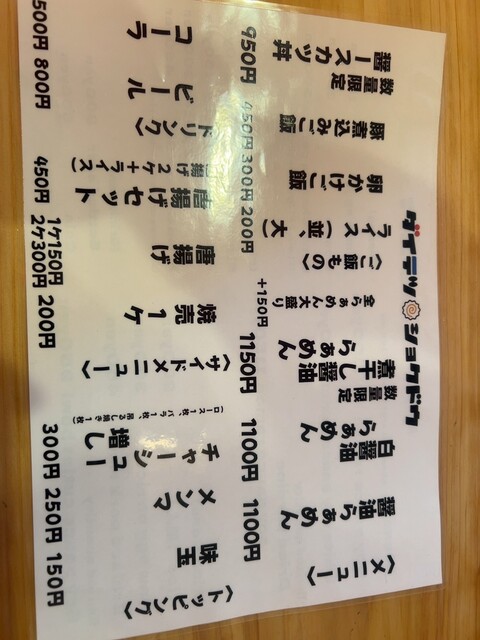 ダイテツ ショクドウ
〈メニュー〉
醤油らぁめん
1100円
白醤油
らぁめん
1100円
数量限定
煮干し醤油
らぁめん
1150円
全らぁめん大盛り
+150円
〈ご飯もの〉
ライス(並、大)
200円
卵かけご飯
300円
豚煮込みご飯
450円
数量限定
醤ースカツ丼
950円
〈トッピング〉
味玉
150円
メンマ
250円
チャーシュー
増し
(ロース1枚、バラ1枚、吊るし焼き1枚)
300円
〈サイドメニュー〉
焼売1ケ
200円
唐揚げ
1ケ150円
2ケ300円
唐揚げセット
(唐揚げ2ケ+ライス)
450円
〈ドリンク〉
ビール
800円
コーラ
500円